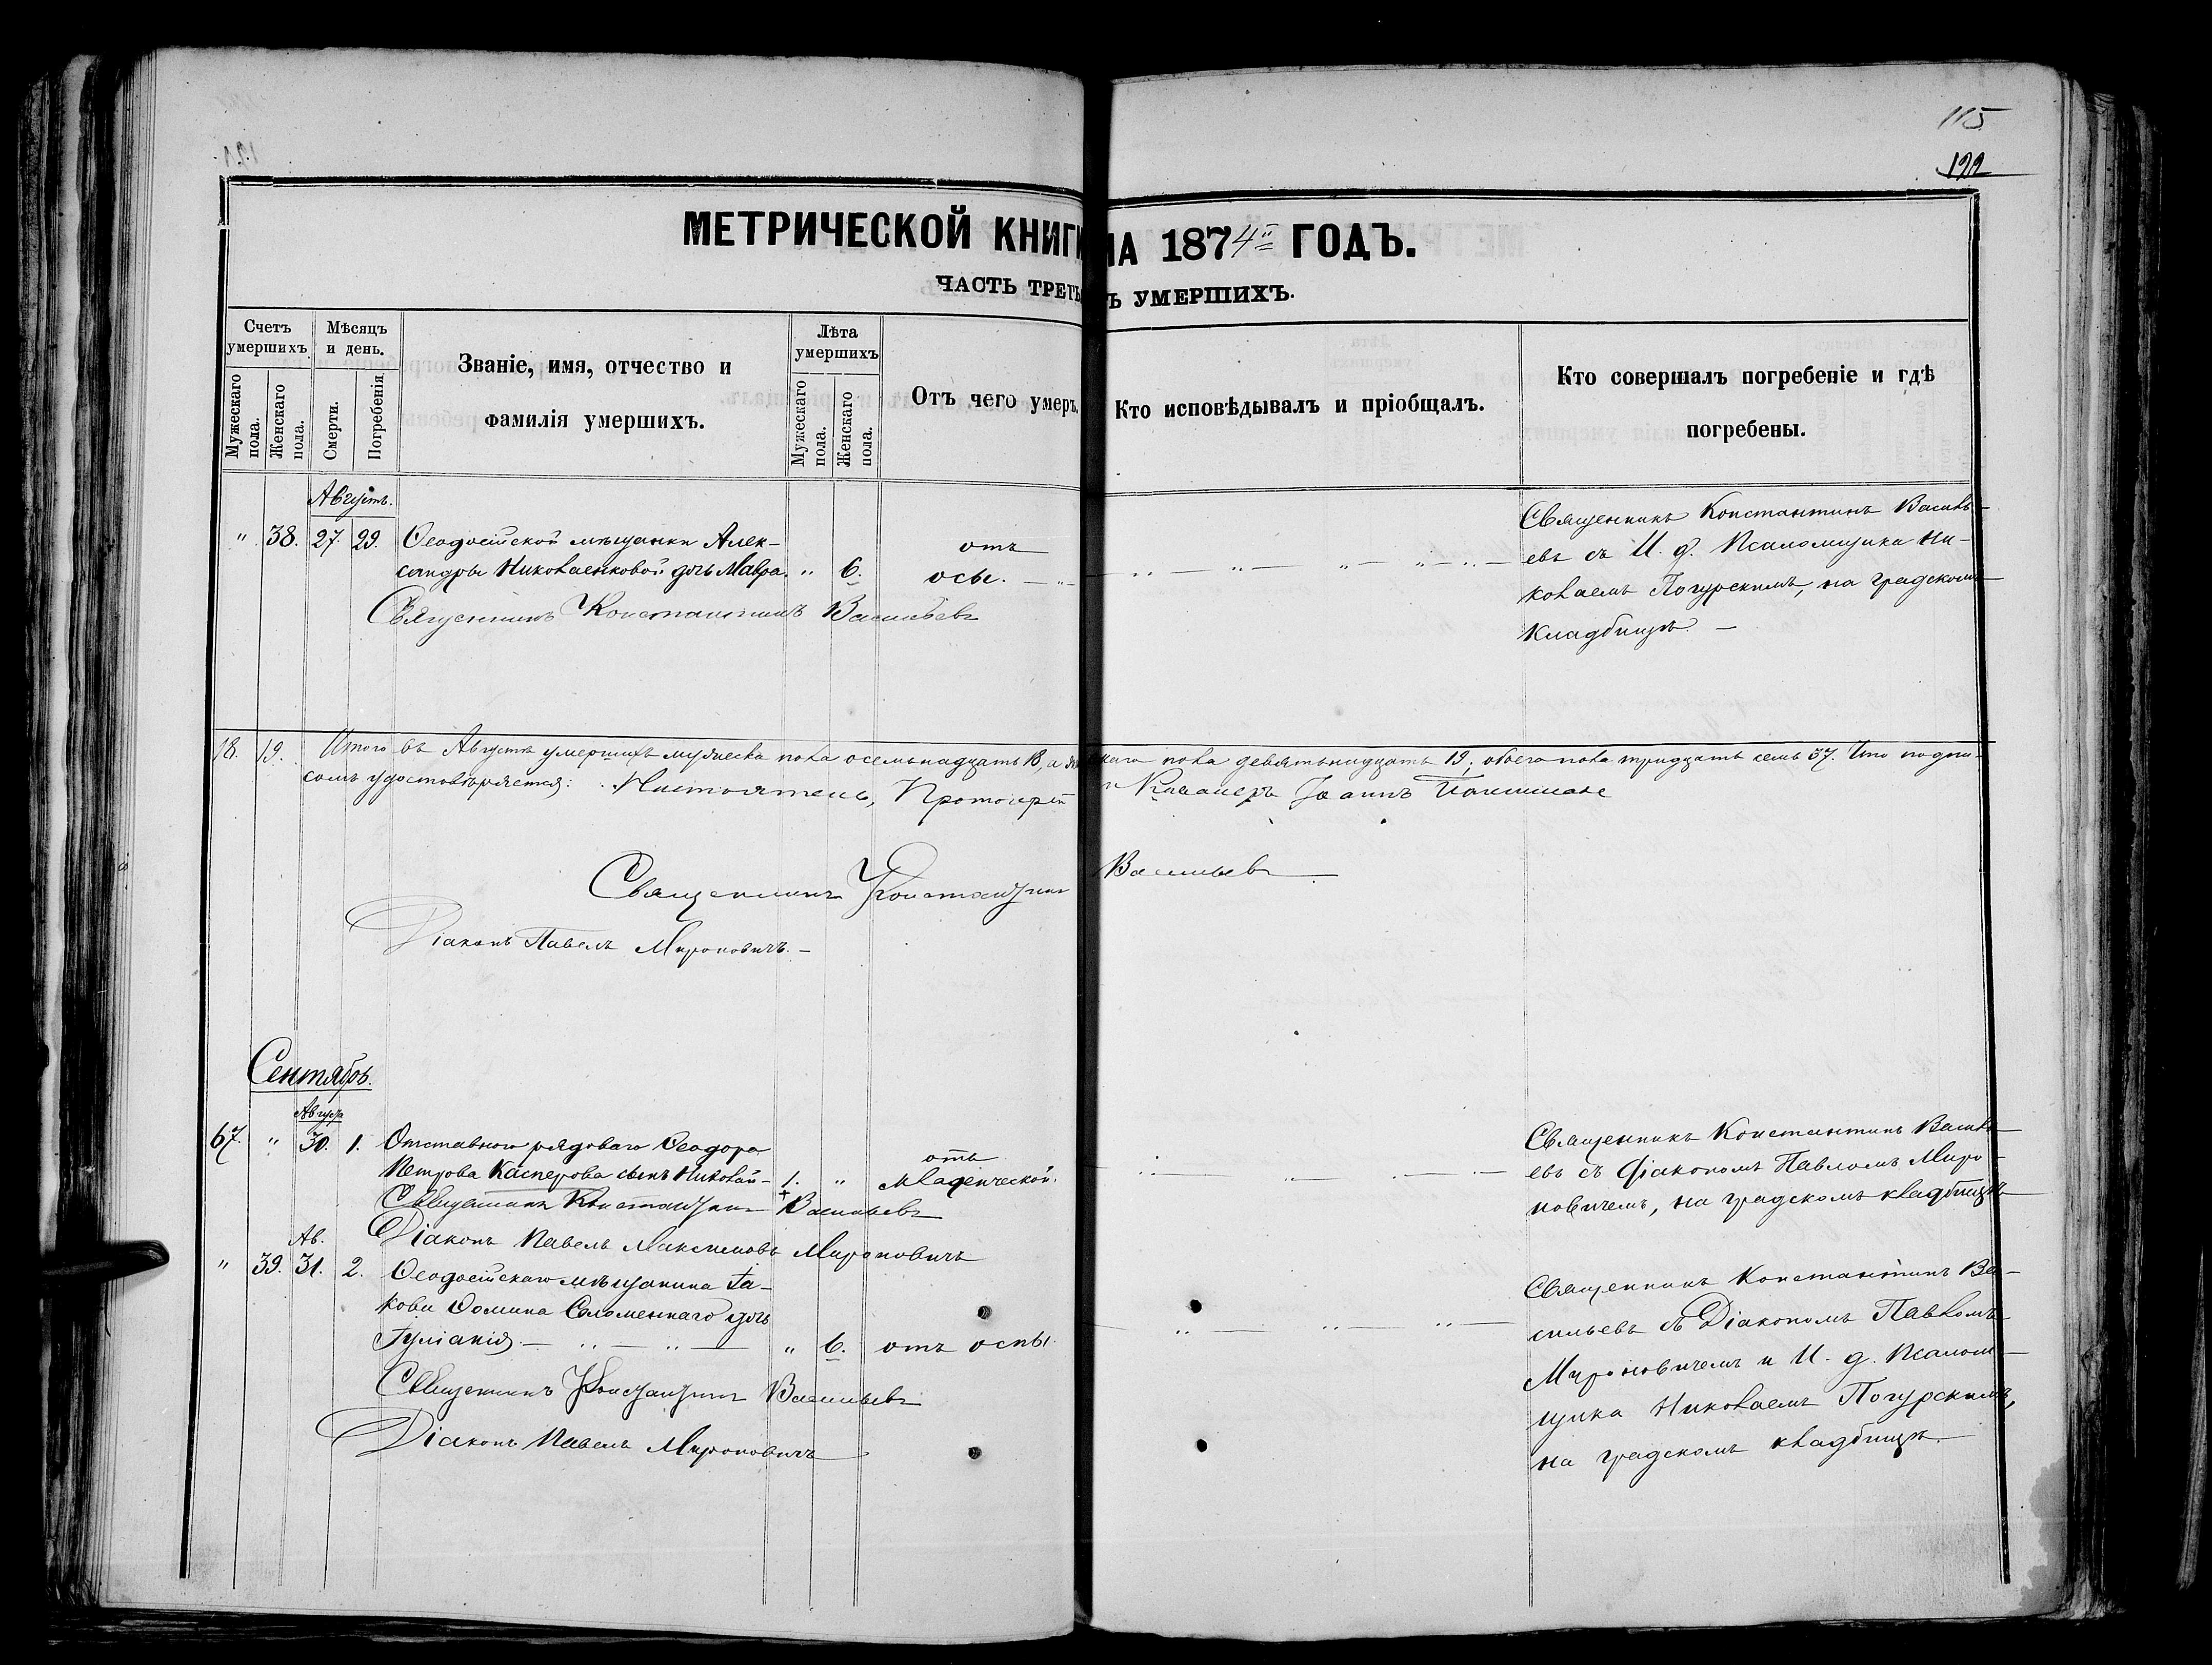 115
122
МЕТРИЧЕСКОЙ КНИГИ НА 1874й ГОДЪ.
ЧАСТЬ ТРЕТЬ Ъ УМЕРШИХЪ.
Счетъ умершихъ.
Мужескаго пола.
Женскаго пола.
Мѣсяцъ и день.
Смерти.
Погребенія.
Званіе, имя, отчество и
фамилія умершихъ.
Лѣта умершихъ
Мужескаго пола.
Женскаго пола.
Отъ чего умеръ.
Кто исповѣдывалъ и пріобщалъ.
Кто совершалъ погребеніе и гдѣ
погребены.
Августъ.
" 38. 27. 29. Ѳеодосійской мѣщанки Алек-
сандры Николаенковой дочь Мавра. " 6. отъ оспы.
Священникъ Константинъ Васильевъ
Священникъ Константинъ Василь-
евъ съ И. д. Псаломщика Ни-
колаемъ Погурскимъ, на градскомъ
кладбищѣ. —
18. 19. Итого въ Августѣ умершихъ мужеска пола осемьнадцать 18, а женскаго пола девятьнадцать 19; обоего пола тридцать семь 37. Что подпи-
сомъ удостовѣряется: Настоятель, Протоіерей и Кавалеръ Іоаннъ
Священникъ Константинъ Васильевъ
Діаконъ Павелъ Мироновичъ. —
Сентябрь.
Августа
67. " 30. 1. Отставного рядоваго Ѳеодора
Петрова Касперова сынъ Николай — 1. " отъ младенческой.
Священникъ Константинъ Васильевъ
Діаконъ Павелъ Максимовъ Мироновичъ
Священникъ Константинъ Василь-
евъ съ Діакономъ Павломъ Миро-
новичемъ, на градскомъ кладбищѣ
Ав.
" 39. 31. 2. Ѳеодосійскаго мѣщанина Іа-
кова Ѳомина Соломеннаго дочь
Іуліанія. — " 6. отъ оспы
Священникъ Константинъ Васильевъ
Діаконъ Павелъ Мироновичъ
Священникъ Константинъ Ва-
сильевъ съ Діакономъ Павломъ
Мироновичемъ и И. д. Псалом-
щика Николаемъ Погурскимъ,
на градскомъ кладбищѣ.